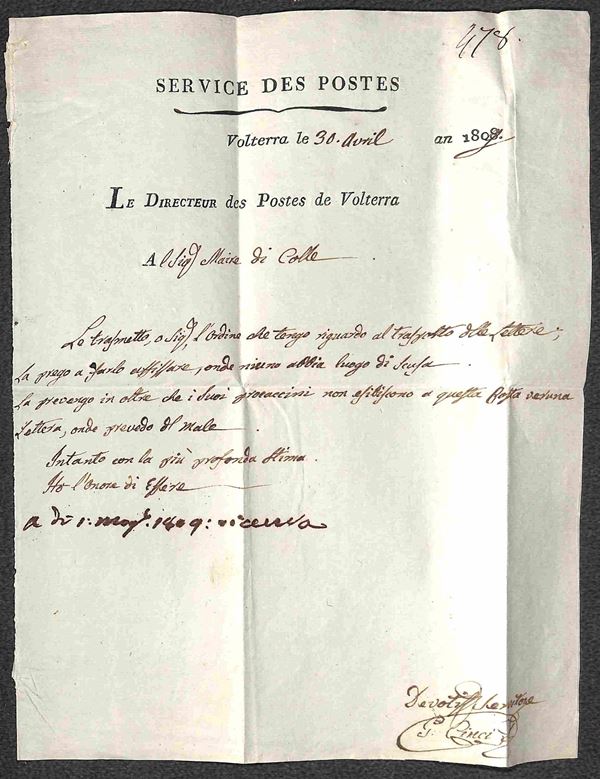 478.
SERVICE DES POSTES
Volterra le 30. Avril an 1809.
LE DIRECTEUR des Postes de Volterra
Al Sigr Maire di Colle
Le trasmetto, o Sigr, l'Ordine che tengo riguardo al trasporto delle Lettere;
La prego a farlo affissare, onde niuno abbia luogo di Scusa
La prevengo in oltre che i Suoi procaccini non esibiscono a questa Posta veruna
Lettera, onde prevedo del male
Intanto con la più profonda Stima
Ho l'Onore di Essere
a di 1: mag. 1809: ricevuta
Devotiss Servitore
G. Cinci